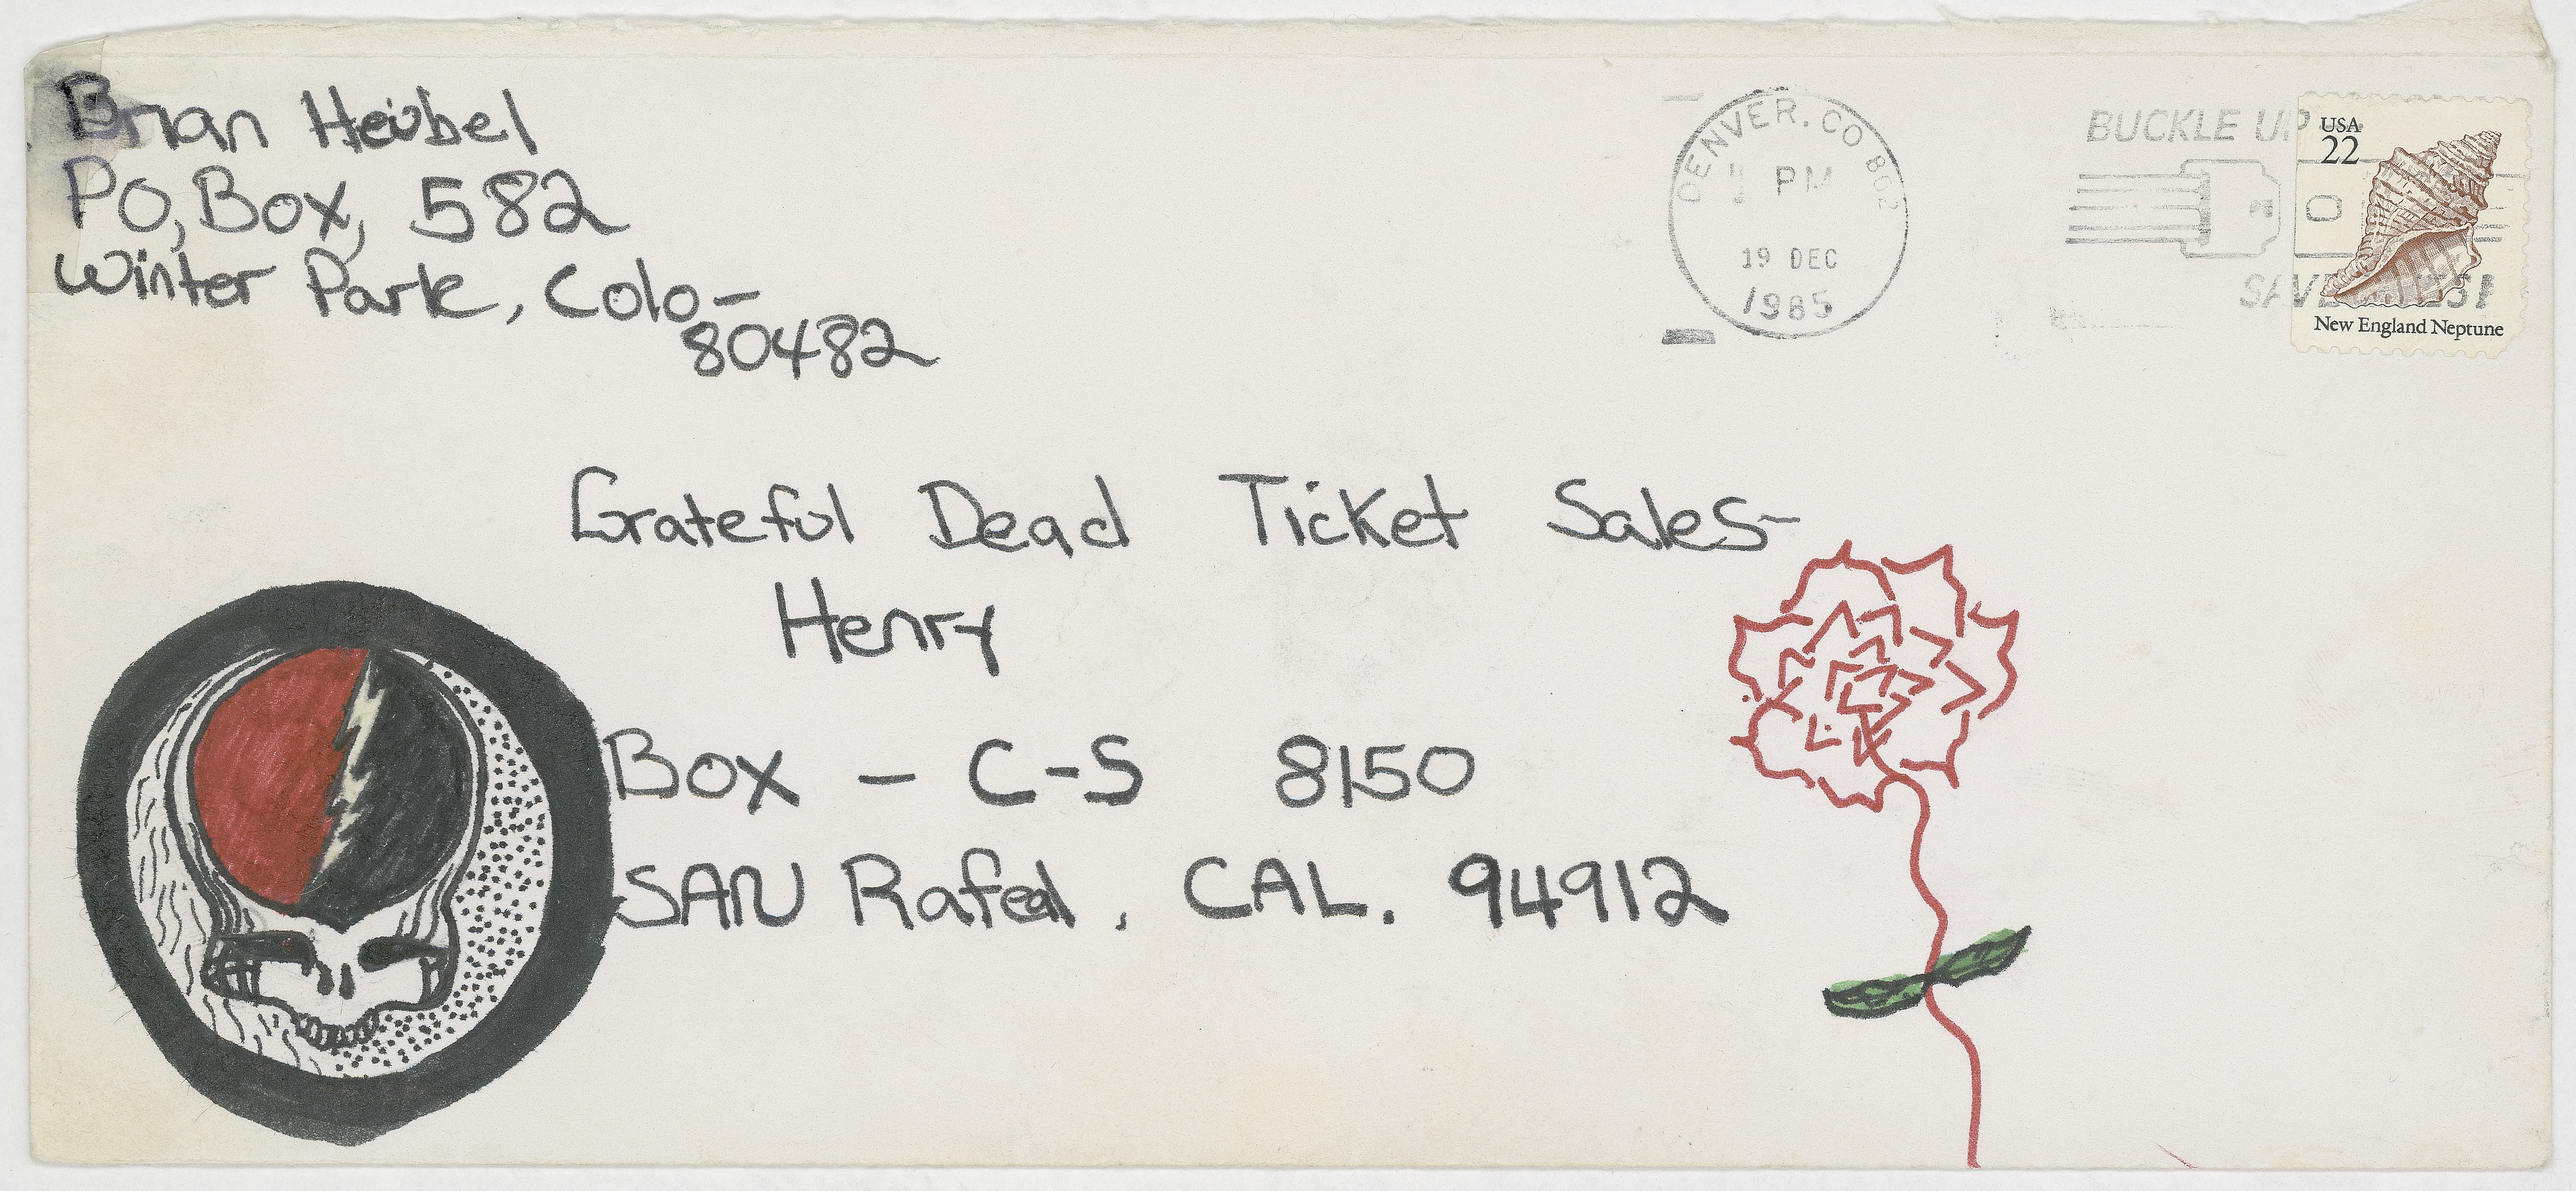 Brian Heibel
PO, Box, 582
Winter Park, Colo-
80482
DENVER. CO 802
PM
19 DEC
1985
BUCKLE UP
USA
22
New England Neptune
Grateful Dead Ticket Sales-
Henry
Box - C-S 8150
SAN Rafeal, CAL. 94912